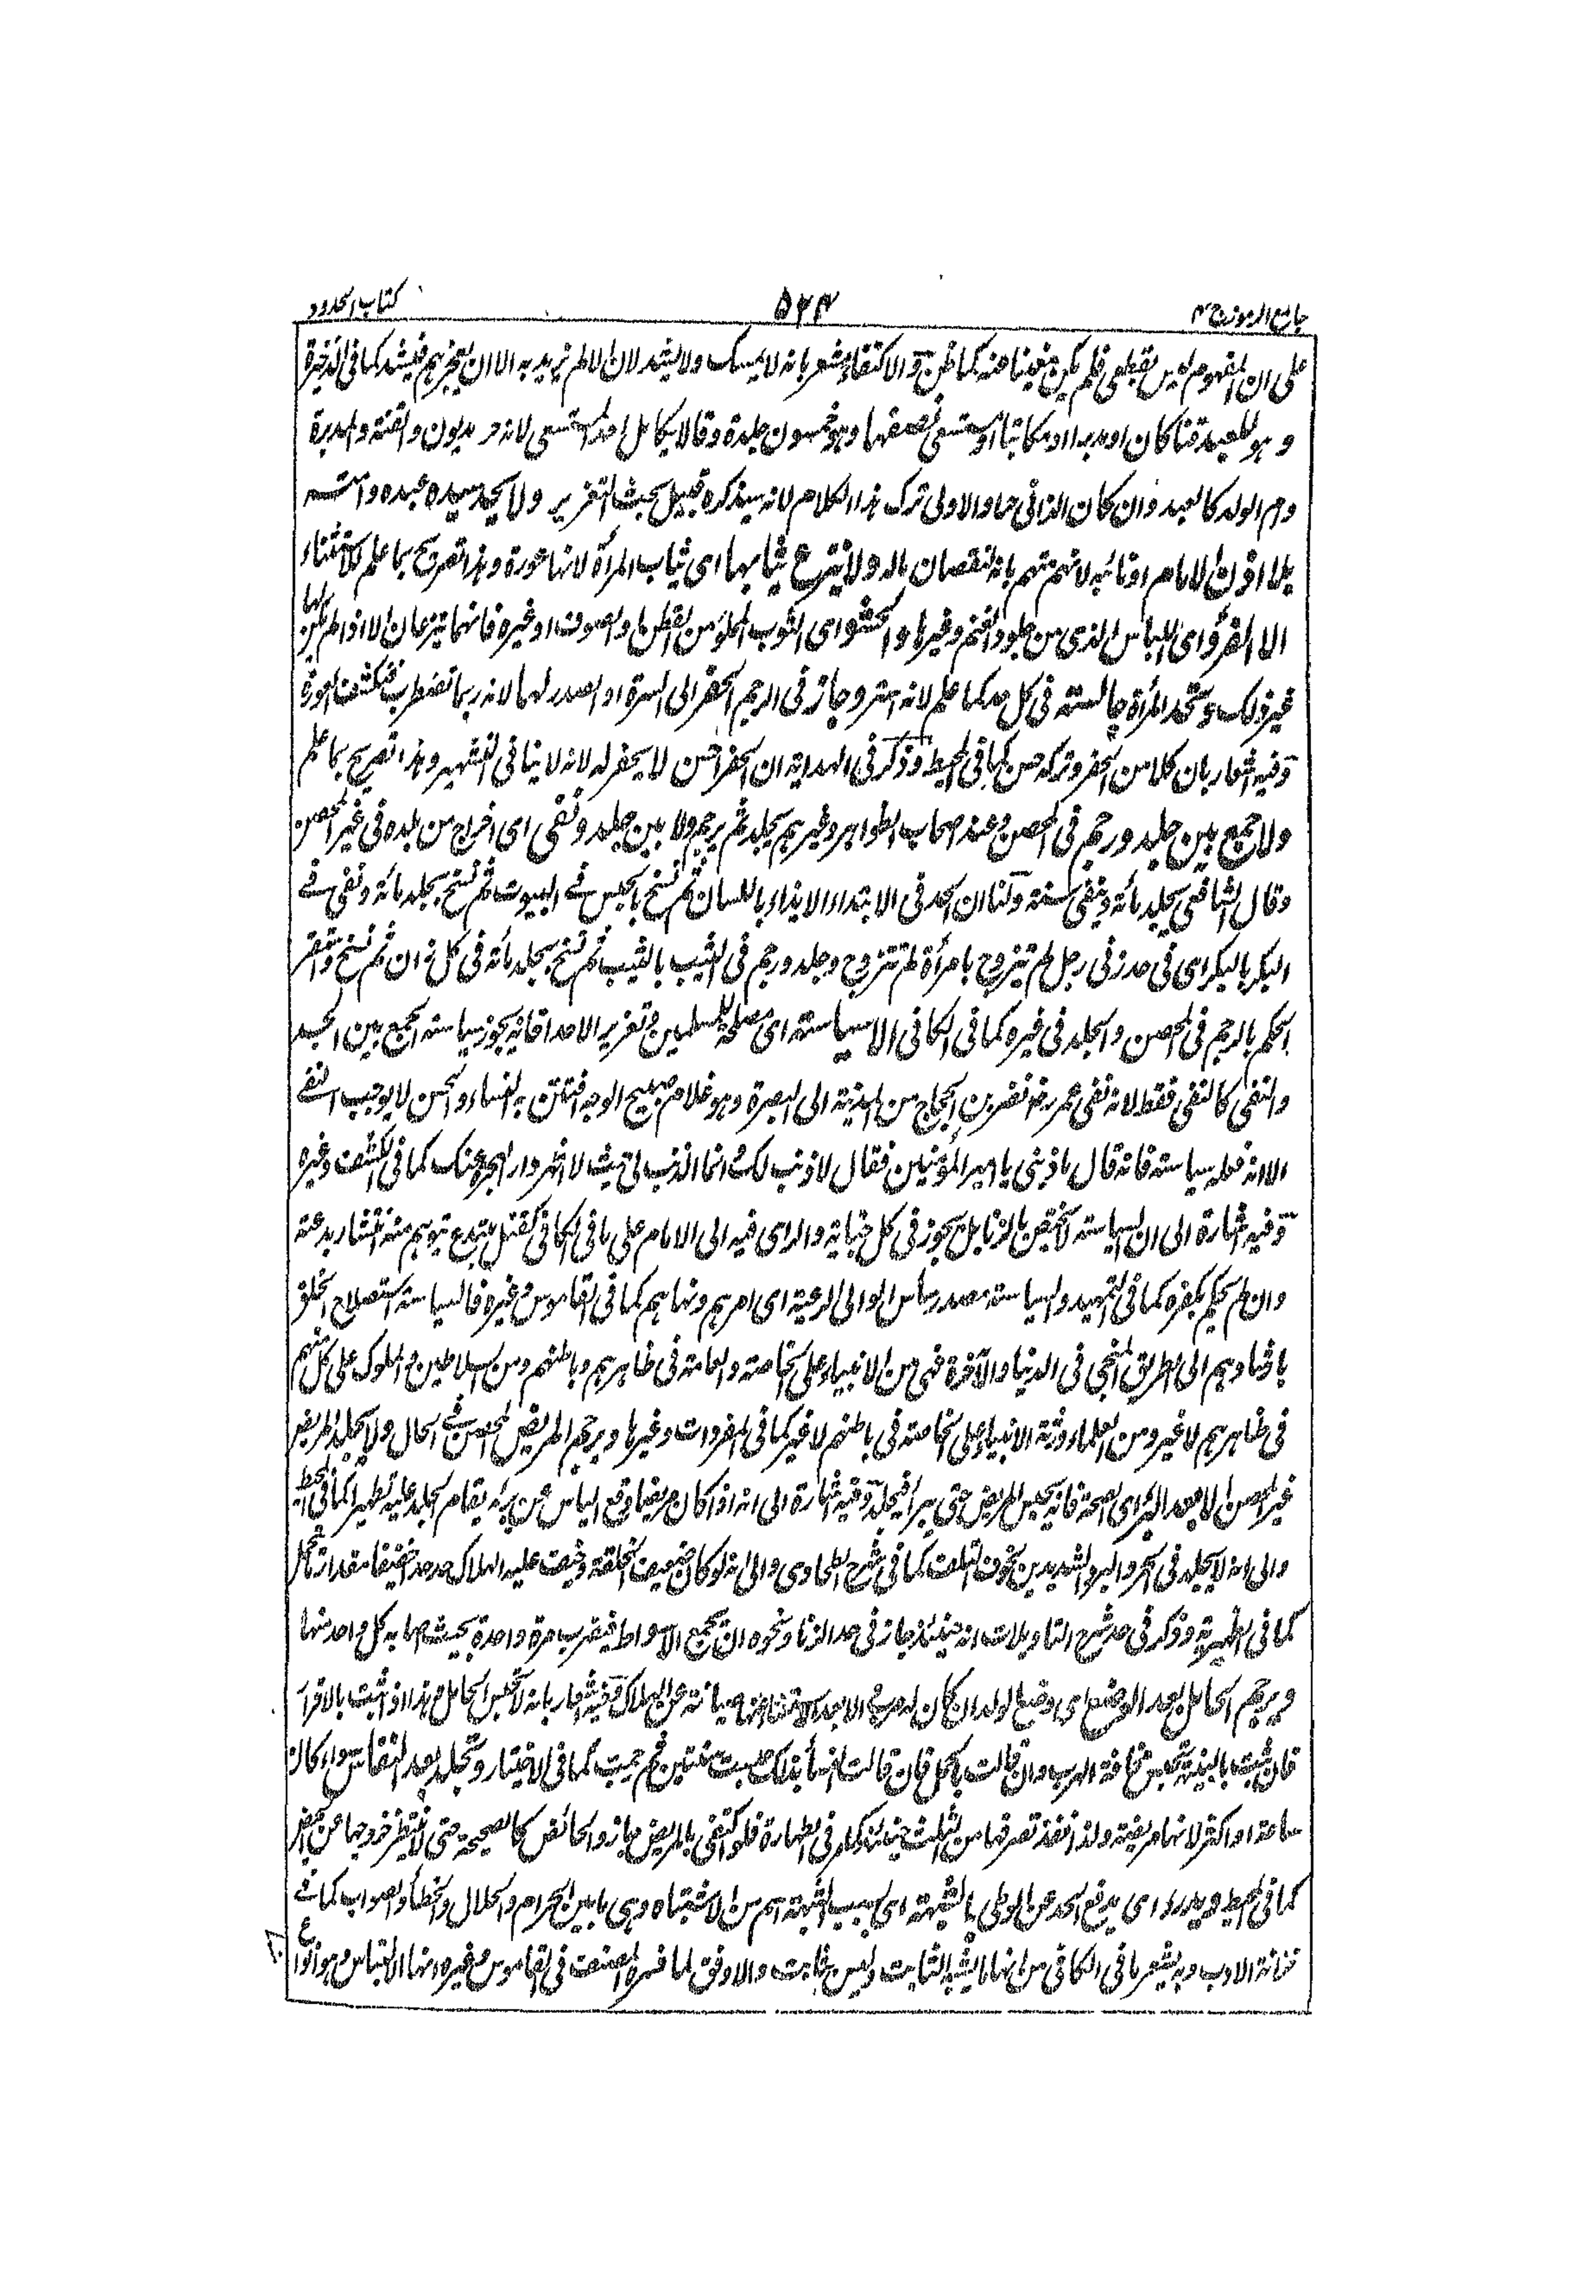 جامع الرموز ج ۴
۵۲۴
كتاب الحدود
على ان المفهوم ليس بقطعي فلم يكن مغنيا عنه كما ظن والاكتفاء مشعر بانه لا يمسك ولا يشد لان الالم يزيد به الا ان يعجزهم فيشد كما في الذخيرة
و هو للعبد قنا كان او مدبرا او مكاتبا او مستسعى نصفها وهو خمسون جلدة وقالا يكامل حد المستسعى لانه حر مديون والقنة والمدبرة
وام الولد كالعبد وان كان الزاني حرا والاولى ترك هذا الكلام لانه سيذكره قبيل بحث التعزير ولا يحد سيده عبده وامته
بلا اذن الامام او نائبه لانهم متهم بانه لنقصان ماله ولا ينزع ثيابها اى ثياب المرأة لانها عورة وهذا تصريح بما علم كالاستثناء
الا الفرو اى اللباس الذى من جلود الغنم وغيرها والحشو اى الثوب المحلو من القطن او الصوف او غيره فانهما ينزعان الا اذا لم يكن لها
غير ذلك وتحد المرأة جالسته فى كل حد كما علم لانه استر وجاز فى الرجم الحفر الى السرة او الصدر لها لانه ربما تضطرب فتكشف العورة
وفيه اشعار بان كلا من الحفر وتركه حسن كما فى المحيط وذكر فى الهداية ان الحفر احسن لا يحفر له لانه لا ينافى التشهير وهذا تصريح بما علم
ولا جمع بين جلد ورجم فى المحصن وعند اصحاب الظواهر وغيرهم يجلد ثم يرجم ولا بين جلد ونفى اى اخراج من بلده فى غير المحصن
وقال الشافعى يجلد مائة وينفى سنة ولنا ان الحد فى الابتداء الايذاء باللسان ثم نسخ بالحبس فى البيوت ثم نسخ بجلد مائة ونفى فى
البكر بالبكر اى فى حد زنى رجل لم يتزوج بامرأة لم تتزوج وجلد ورجم فى الثيب بالثيب ثم نسخ بجلد مائة فى كل زان ثم نسخ واستقر
الحكم بالرجم فى المحصن والجلد فى غيره كما فى الكافى الا سياسته اى مصلحة للمسلمين وتعزيرا لاحدا فانه يجوز سياسته الجمع بين الجلد
والنفى كالنفى فقط لانه نفى عمر رض نصر بن الحجاج من المدينة الى البصرة وهو غلام صبيح الوجه افتتن به النساء والحسن لا يوجب النفى
الا انه فعله سياسته فانه قال ما ذنبى يا امير المؤمنين فقال لا ذنب لك وانما الذنب لى حيث لا اطهر دار الهجرة عنك كما فى الكشف وغيره
وفيه اشارة الى ان السياسته لا تختص بالزنا بل يجوز فى كل جناية والراى فيه الى الامام على ما فى الكافى كقتل مبتدع يتوهم منه انتشار بدعته
وان لم يحكم بكفره كما فى التمهيد والسياسته مصدر ساس الوالى الرعية اى امرهم ونهاهم كما فى القاموس وغيره فالسياسته استصلاح الخلق
بارشادهم الى الطريق المنجى فى الدنيا والآخرة فهى من الانبياء على الخاصته والعامته فى ظاهرهم وباطنهم ومن السلاطين والملوك على كل منهم
فى ظاهرهم لا غير ومن العلماء ورثة الانبياء على الخاصته فى باطنهم لا غير كما فى المفردات وغيرها ويرجم المريض المحصن فى الحال ولا يجلد المريض
غير المحصن الا بعد البرء اى الصحة فانه يحبس المريض حتى يبرأ فيجلد وفيه اشارة الى انه اذا كان مريضا وقع الياس عن برئه يقام الجلد عليه تطهيرا كما فى المحيط
والى انه لا يجلد فى الحر والبرد الشديدين لخوف التلف كما فى شرح الطحاوى والى انه لو كان ضعيف الخلقة وخيف عليه الهلاك حد حدا خفيفا مقدار تحمل
كما فى الظهيرية وذكر فى حد شرح التاويلات انه حينئذ جاز فى حد الزنا ونحوه ان يجمع الاسواط فيضرب مرة واحدة بحيث اصابه كل واحد منها
ويرجم الحامل بعد الوضع اى وضع الولد ان كان له مرب والا بعد الاستغناء صيانته عن الهلاك وفيه اشعار بانه لا تحبس الحامل وهذا اذا ثبت بالاقرار
فان ثبت بالبينة تحبس مخافة الهرب وان قالت بالحمل فان قالت النساء بذلك حبست سنتين ثم رجمت كما فى الاختيار وتجلد بعد النفاس سواء كان
ساعته او اكثر لانها مريضته ولذا نفذ تصرفها من الثلث حينئذ كما مر فى الطهارة فلو اكتفى بالمريض جاز والحائض كالصحيحة حتى لا ينتظر خروجها عن الحيض
كما فى المحيط ويدرأ اى يدفع الحد عن الوطى بالشبهته اى بسبب الشبهته اسم من الاشتباه وهى ما بين الحرام والحلال والخطأ والصواب كما فى
خزانة الادب وبه يشعر ما فى الكافى من انها ما يشبه الثابت وليس بثابت والاوفق لما فسره المصنف فى القاموس وغيره انها الالتباس وهو انواع